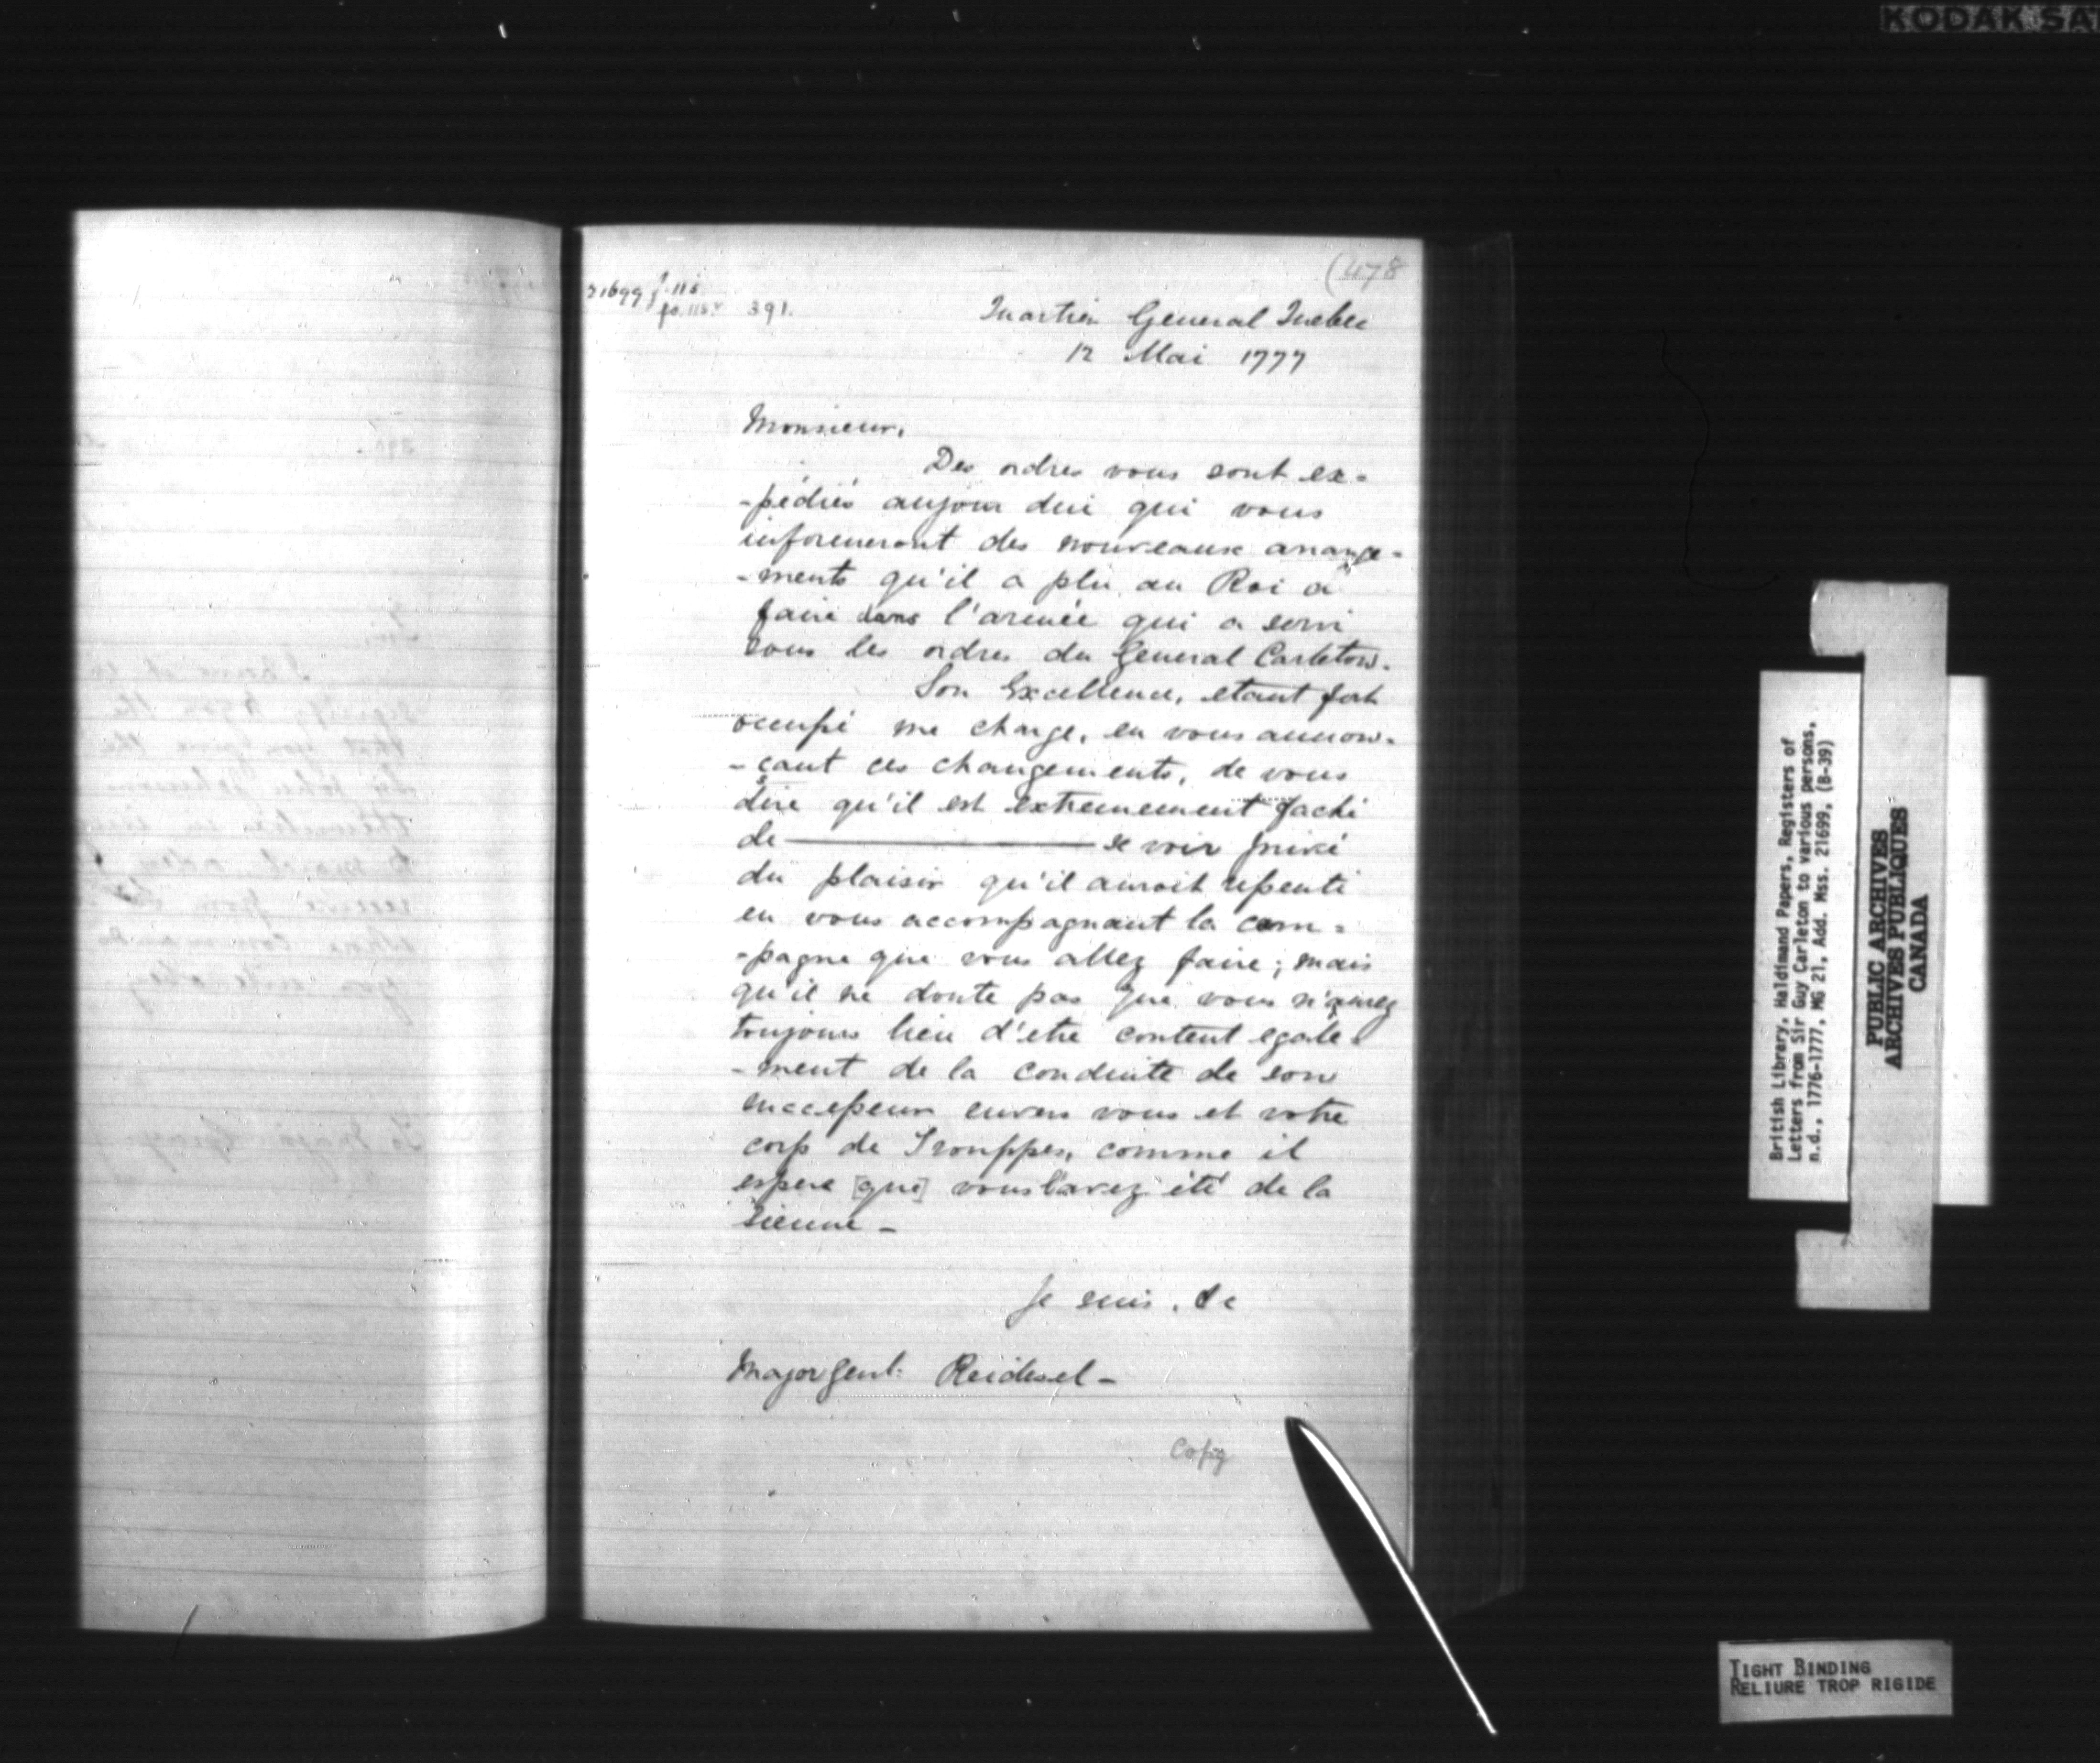 KODAK SA
(478
21699 f. 115
fo. 115v 391.
Quartier General Quebec
12 Mai 1777
Monsieur,
Des ordres vous sont ex-
-pédiés aujour dui qui vous
informeront des nouveaux arrange-
-ments qu'il a plu au Roi a
faire dans l'armée qui a servi
sous les ordres du General Carleton.
Son Excellence, etant fort
occupé me charge, en vous annon-
-çant ces changements, de vous
dire qu'il est extremement faché
de ——— se voir privé
du plaisir qu'il auroit ressenti
en vous accompagnant la cam-
-pagne que vous allez faire; mais
qu'il ne doute pas que vous n'aurez
toujours lieu d'etre content egale-
-ment de la conduite de son
successeur envers vous et votre
corp de Trouppes, comme il
espere [que] vous l'avez été de la
sienne -
Je suis, &c
Major Genl: Reidesel -
Copy
British Library, Haldimand Papers, Registers of
Letters from Sir Guy Carleton to various persons,
n.d., 1776-1777, MG 21, Add. Mss. 21699, (B-39)
PUBLIC ARCHIVES
ARCHIVES PUBLIQUES
CANADA
TIGHT BINDING
RELIURE TROP RIGIDE